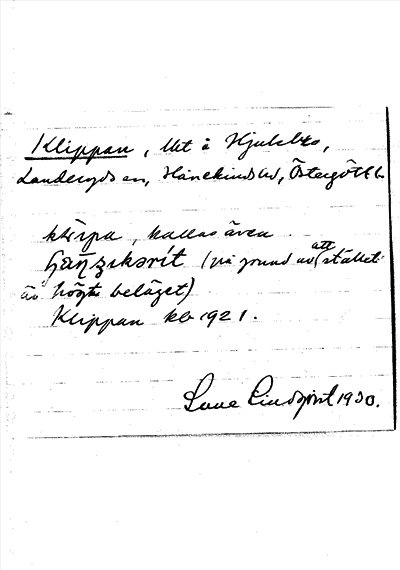 Klippan, lht å Hjulebo,
Landeryds sn, Hanekinds hd, Östergötl.
klìpa, kallas även
(på grund av att stället
är högt beläget)
Klippan kb 1921.
Sune Lindqvist 1930.